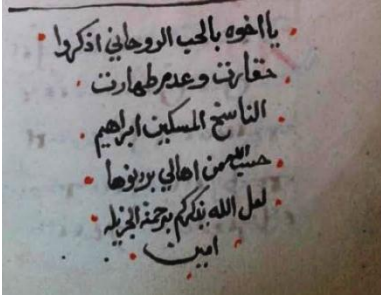 يا اخوه بالحب الروحاني اذكروا
حقارت وعدم طهارت
الناسخ المسكين ابراهيم
من اهالي
لعل الله يذكركم برحمته الجزيله
امين